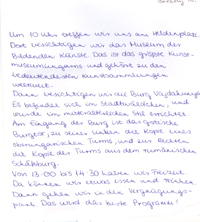 Um 10 Uhr treffen wir uns am Heldenplatz.
Dort besichtigen wir das Museum der
Bildenden Künste. Das ist das größte Kunst-
museum Ungarns und gehört zu den
bedeutendsten Kunstsammlungen
weltweit.
Dann besichtigen wir die Burg Vajdahunyad.
Es befindet sich im Stadtwäldchen, und
wurde im mittelalterlichen Stil errichtet.
Am Eingang der Burg ist das gotische
Burgtor, zu seiner linken die Kopie eines
Turms, und zur Rechten
die Kopie des Turms aus dem rumänischen
Schäßburg.
Von 13:00 bis 14:30 haben wir Freizeit.
Da können wir etwas essen und trinken.
Dann gehen wir in den Vergnügungs-
park. Das wird das beste Programm!